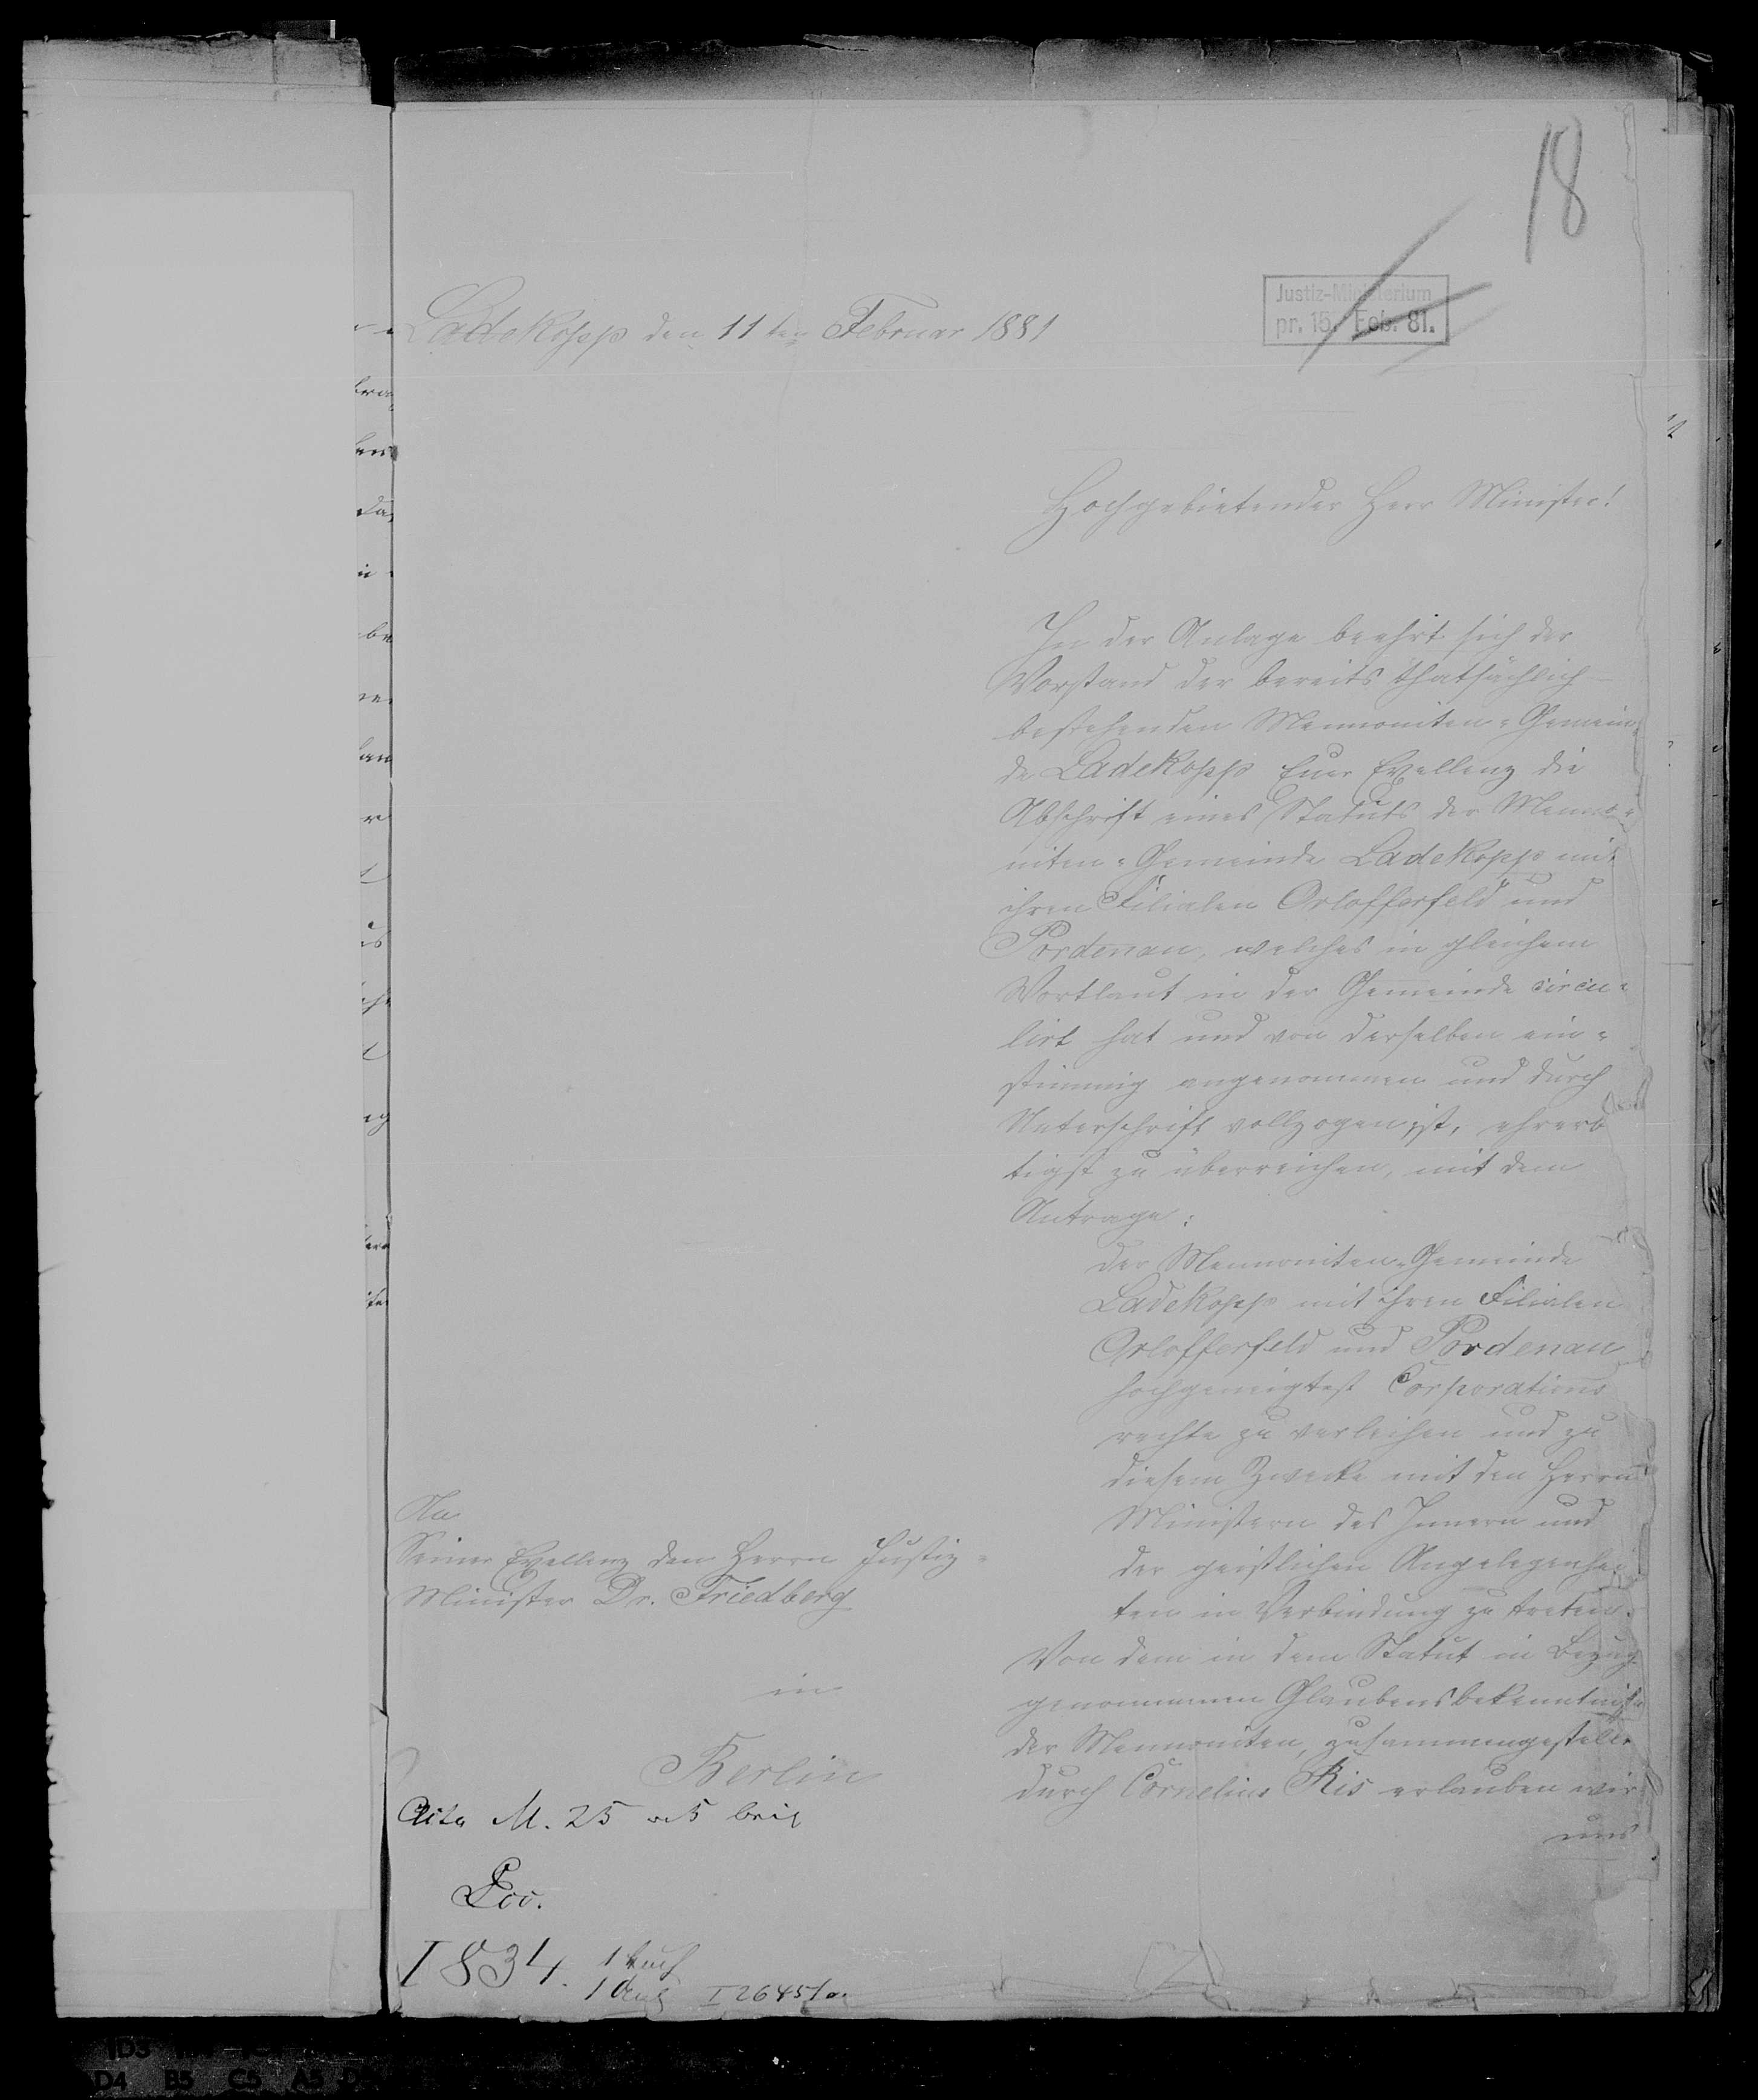 18
Justiz-Ministerium
pr. 15. Feb. 81.
Ladekopp den 11ten Februar 1881
Hochgebietender Herr Minister!
In der Anlage beehrt sich der
Vorstand der bereits thatsächlich
bestehenden Mennoniten-Gemein-
de Ladekopp Euer Excellenz die
Abschrift eines Statuts der Menno-
niten-Gemeinde Ladekopp mit
ihren Filialen Orlofferfeld und
Pordenau, welches in gleichem
Wortlaut in der Gemeinde circu-
lirt hat und von derselben ein-
stimmig angenommen und durch
Unterschrift vollzogen ist, ehrerb
tigst zu überreichen, mit dem
Antrage:
der Mennoniten-Gemeinde
Ladekopp mit ihren Filialen
Orlofferfeld und Pordenau
hochgeneigtest Corporations
rechte zu verleihen und zu
diesem Zwecke mit den Herrn
Ministern des Innern und
der geistlichen Angelegenhei
ten in Verbindung zu treten.
Von dem in dem Statut in Bezug
genommenen Glaubensbekenntniße
der Mennoniten, zusammengestellt
durch Cornelius Ris erlauben wir
uns
An
Seiner Excellenz den Herrn Justiz-
Minister Dr. Friedberg
in
Berlin
Acta M. 25
I 834.
I 2645/a.